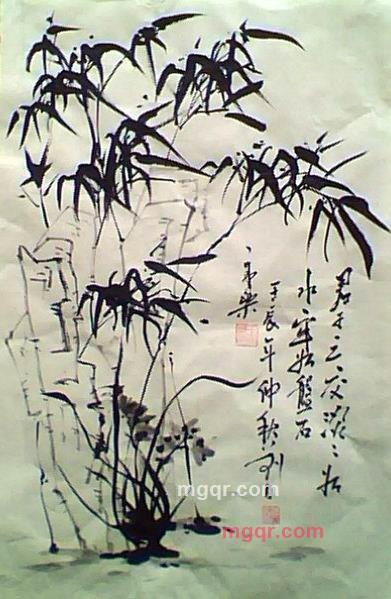 君子之交淡〻如
水牢如盤石
壬辰年仲秋刘
樂
mgqr.com
mgqr.com